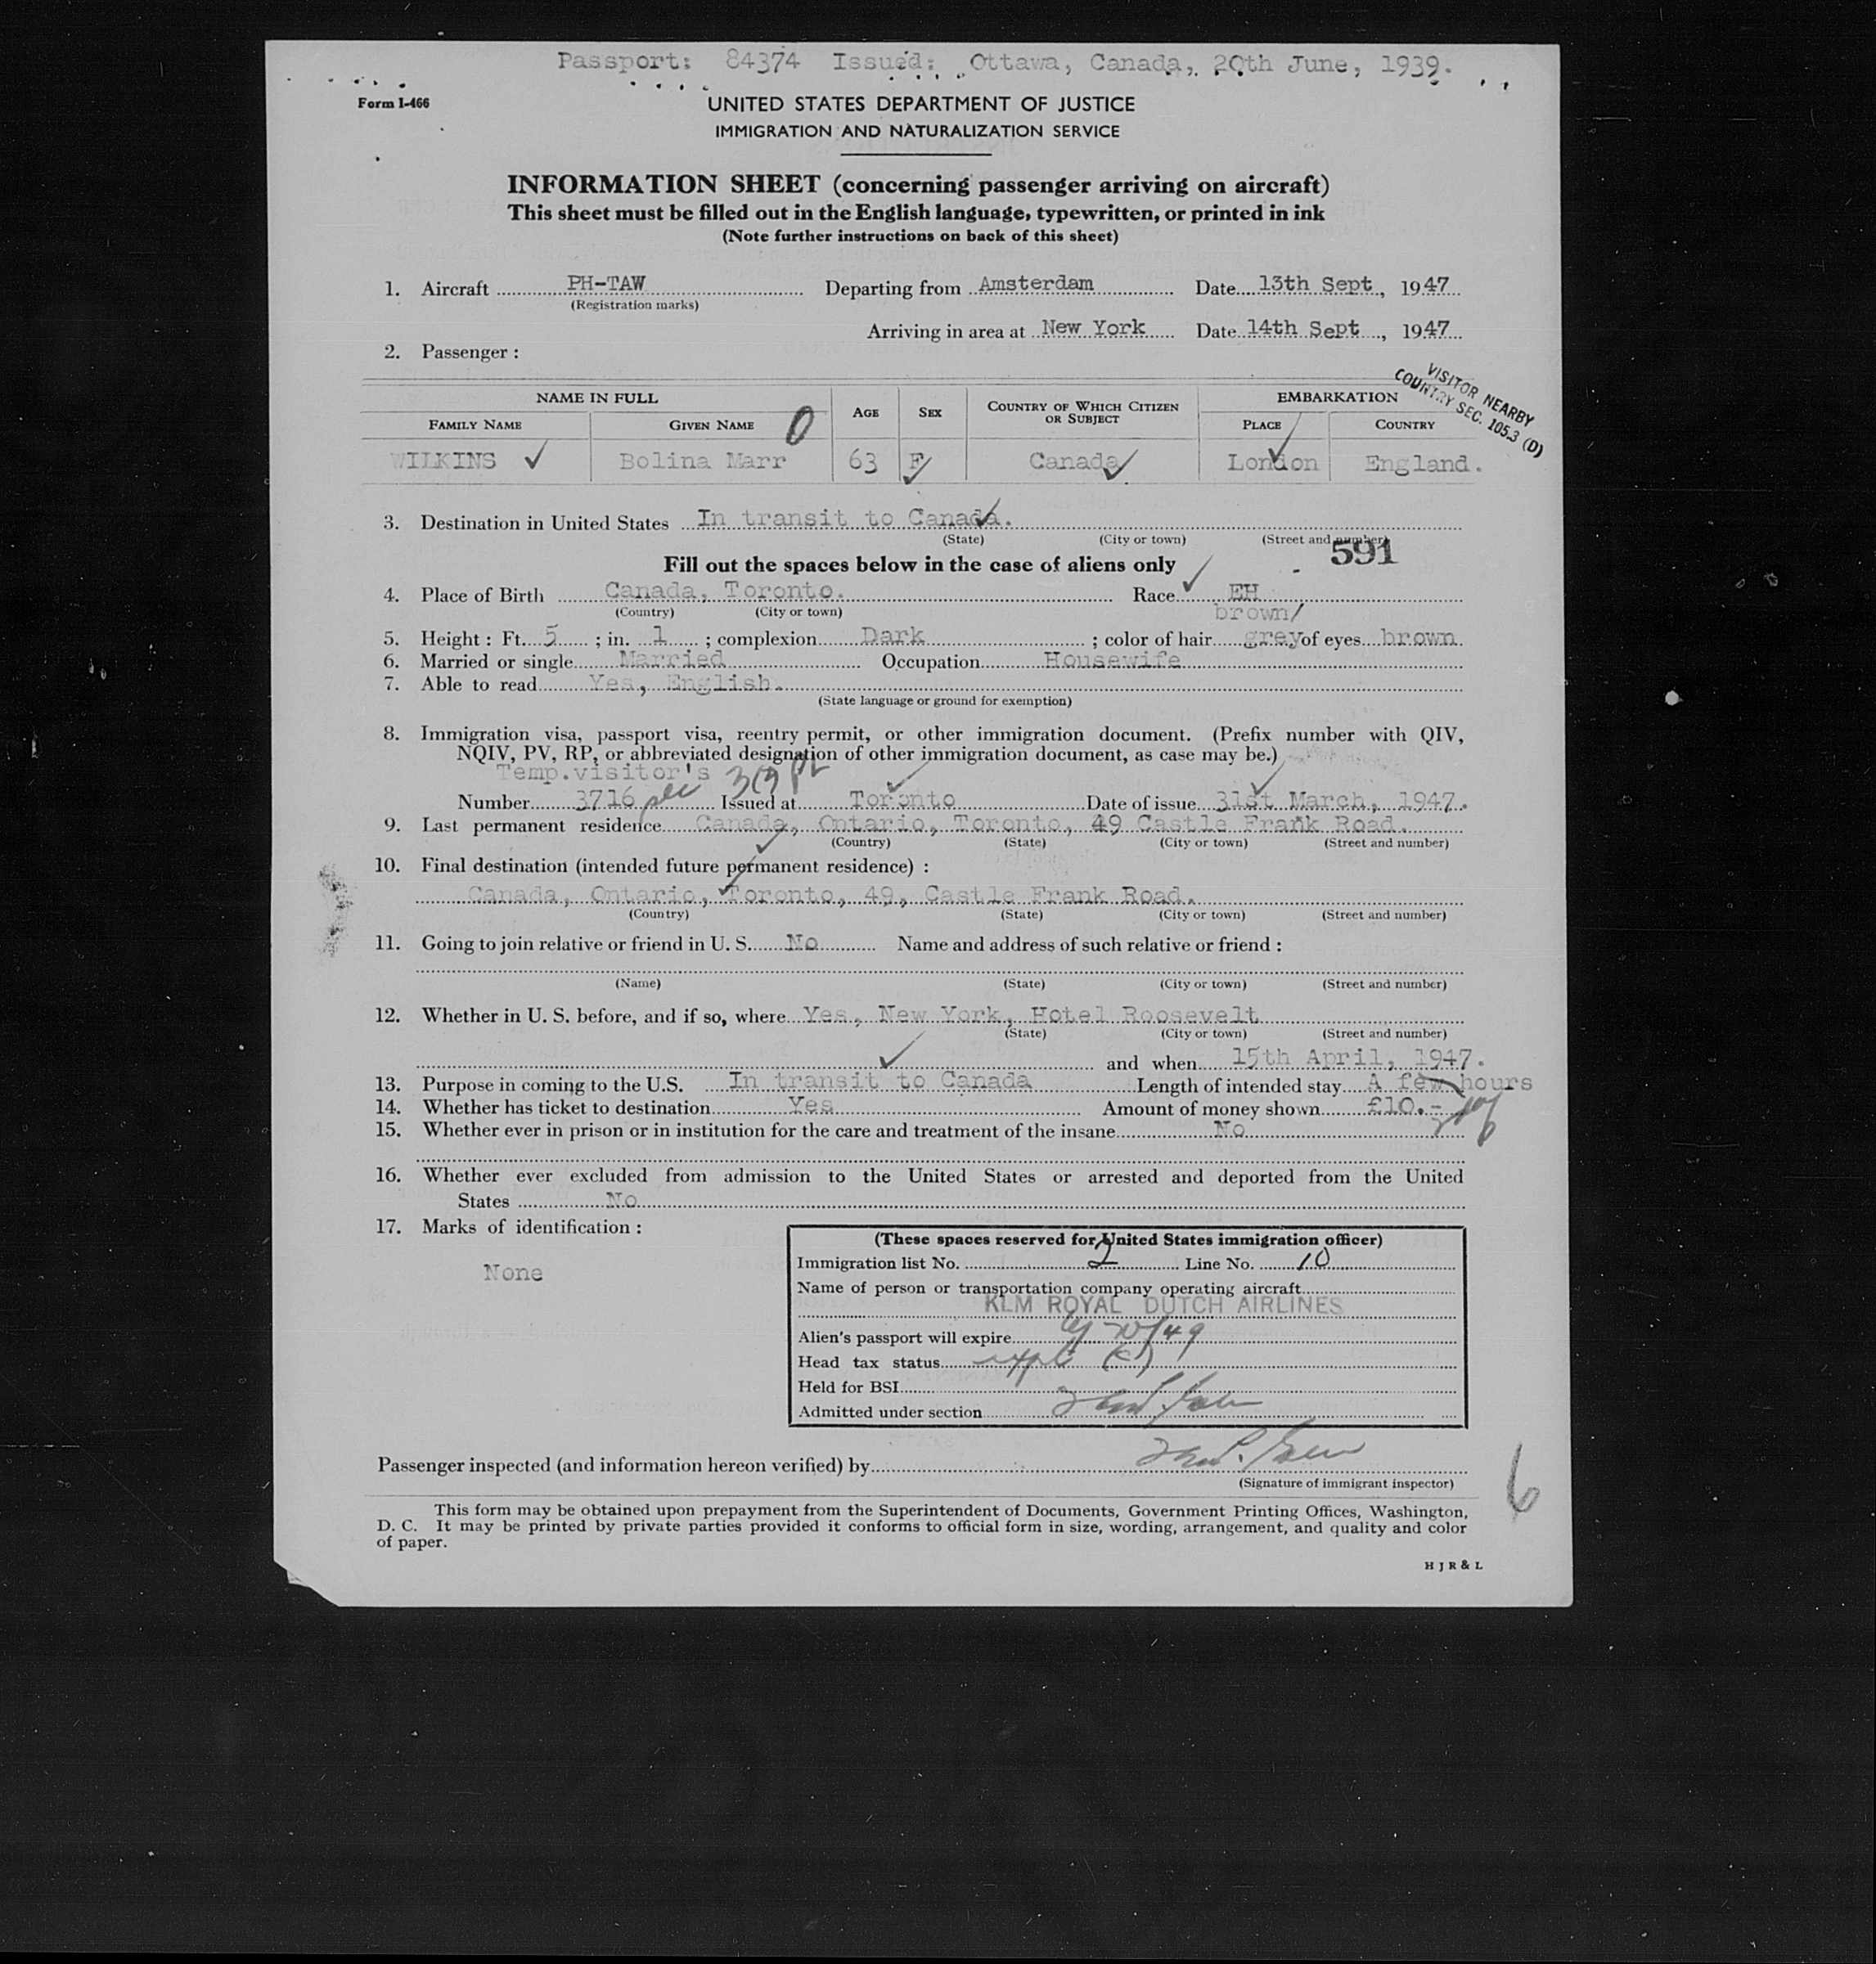 Passport: 84374 Issued: Ottawa, Canada, 20th June, 1939.
Form I-466
UNITED STATES DEPARTMENT OF JUSTICE
IMMIGRATION AND NATURALIZATION SERVICE
INFORMATION SHEET (concerning passenger arriving on aircraft)
This sheet must be filled out in the English language, typewritten, or printed in ink
(Note further instructions on back of this sheet)
1. Aircraft PH-TAW Departing from Amsterdam Date 13th Sept, 1947
(Registration marks)
Arriving in area at New York Date 14th Sept, 1947
2. Passenger :
VISITOR NEARBY
COUNTRY SEC. 105.3 (D)
NAME IN FULL AGE SEX COUNTRY OF WHICH CITIZEN OR SUBJECT EMBARKATION
FAMILY NAME GIVEN NAME 0 PLACE COUNTRY
WILKINS Bolina Marr 63 F Canada London England.
3. Destination in United States In transit to Canada.
(State) (City or town) (Street and number)
591
Fill out the spaces below in the case of aliens only
4. Place of Birth Canada, Toronto. Race EH
(Country) (City or town) brown/
5. Height : Ft. 5 ; in. 1 ; complexion Dark ; color of hair grey of eyes brown
6. Married or single Married Occupation Housewife
7. Able to read Yes, English.
(State language or ground for exemption)
8. Immigration visa, passport visa, reentry permit, or other immigration document. (Prefix number with QIV,
NQIV, PV, RP, or abbreviated designation of other immigration document, as case may be.)
Temp.visitor's 3(9
Number 3716 Issued at Toronto Date of issue 31st March, 1947.
9. Last permanent residence Canada, Ontario, Toronto, 49 Castle Frank Road.
(Country) (State) (City or town) (Street and number)
10. Final destination (intended future permanent residence) :
Canada, Ontario, Toronto, 49, Castle Frank Road.
(Country) (State) (City or town) (Street and number)
11. Going to join relative or friend in U. S. No Name and address of such relative or friend :
(Name) (State) (City or town) (Street and number)
12. Whether in U. S. before, and if so, where Yes, New York, Hotel Roosevelt
(State) (City or town) (Street and number)
and when 15th April, 1947.
13. Purpose in coming to the U.S. In transit to Canada Length of intended stay A few hours
14. Whether has ticket to destination Yes Amount of money shown £10.-
15. Whether ever in prison or in institution for the care and treatment of the insane No
16. Whether ever excluded from admission to the United States or arrested and deported from the United
States No
17. Marks of identification :
None
(These spaces reserved for United States immigration officer)
Immigration list No. 2 Line No. 10
Name of person or transportation company operating aircraft
KLM ROYAL DUTCH AIRLINES
Alien's passport will expire 20/49
Head tax status
Held for BSI
Admitted under section
Passenger inspected (and information hereon verified) by
(Signature of immigrant inspector)
6
This form may be obtained upon prepayment from the Superintendent of Documents, Government Printing Offices, Washington,
D. C. It may be printed by private parties provided it conforms to official form in size, wording, arrangement, and quality and color
of paper.
H J R & L